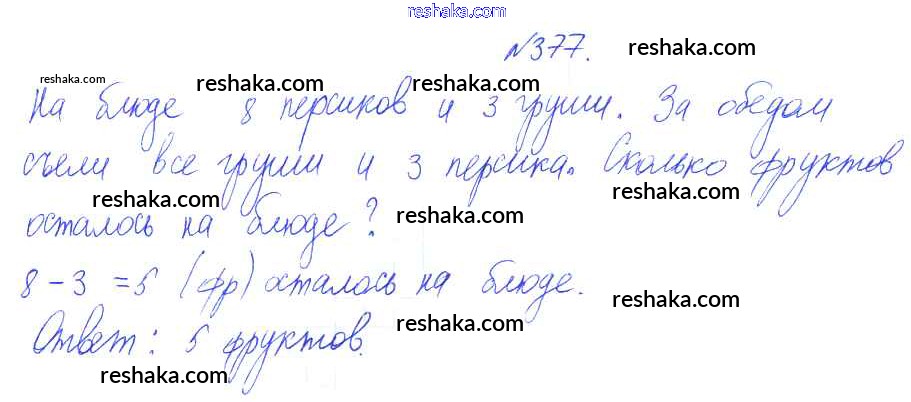 reshaka.com
№377. reshaka.com
reshaka.com reshaka.com reshaka.com
На блюде 8 персиков и 3 груши. За обедом
съели все груши и 3 персика. Сколько фруктов
reshaka.com reshaka.com reshaka.com
осталось на блюде?
8 - 3 = 5 (фр) осталось на блюде.
reshaka.com reshaka.com
Ответ: 5 фруктов.
reshaka.com